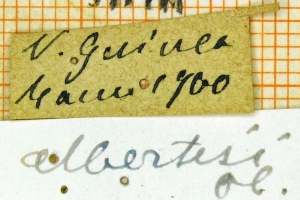 N. Guinea
1900
albertisi
Ob.